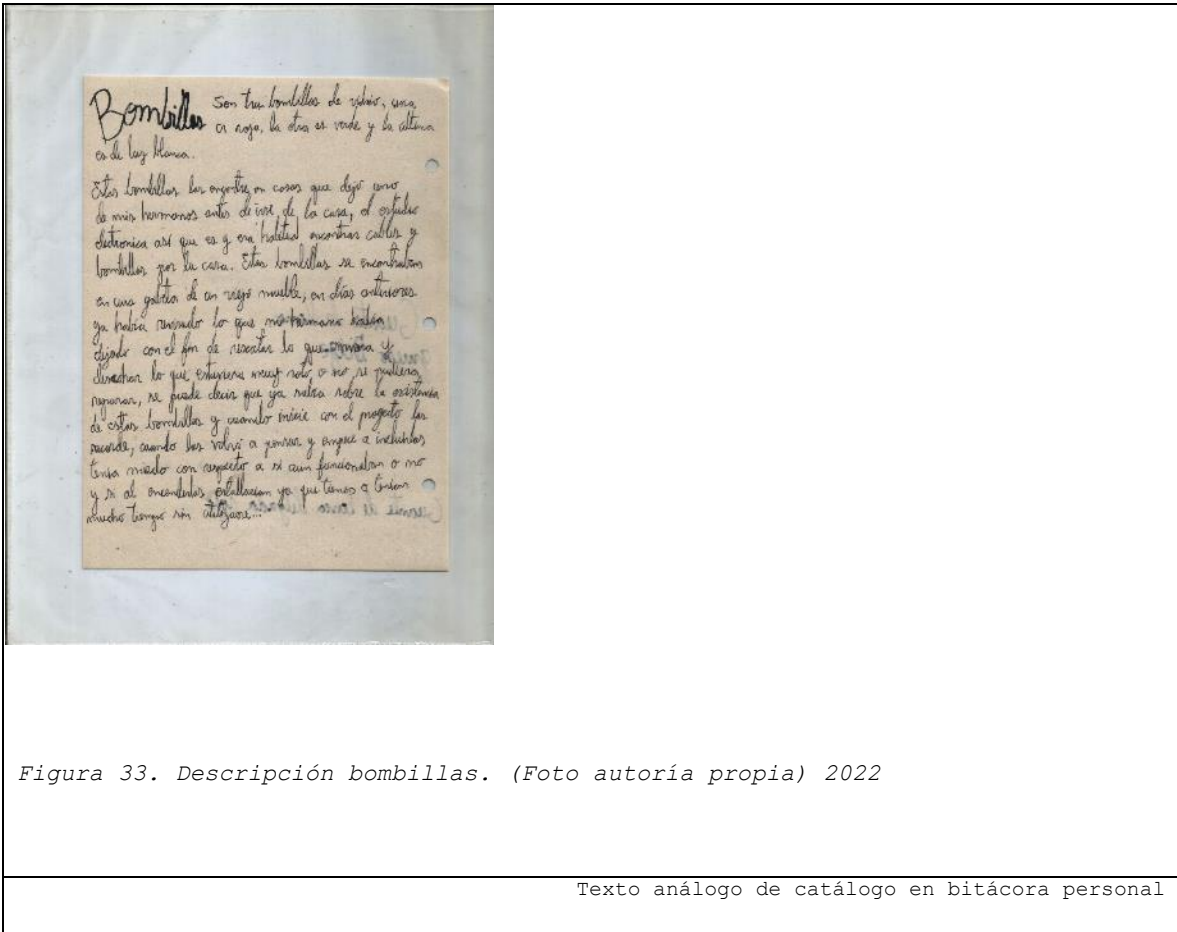 Bombillas Son tres bombillas de vidrio, una
es roja, la otra es verde y la ultima
es de luz blanca.
Estas bombillas las encontre en cosas que dejó uno
de mis hermanos antes de irse de la casa, el estudio
electronica así que es y era habitual encontrar cables y
bombillas por la casa. Estas bombillas se encontraban
en una gabeta de un viejo mueble, en días anteriores
ya había revisado lo que mi hermano había
dejado con el fin de rescatar lo que sirviera y
desechar lo que estuviera muy roto o no se pudiera
reparar, se puede decir que ya sabia sobre la existencia
de estas bombillas y cuando inicie con el proyecto las
recorde, cuando las volví a pensar y empece a incluirlas
tenia miedo con respecto a si aun funcionaban o no
y si al encenderlas estallarian ya que
mucho tiempo sin utilizarse...
Figura 33. Descripción bombillas. (Foto autoría propia) 2022
Texto análogo de catálogo en bitácora personal